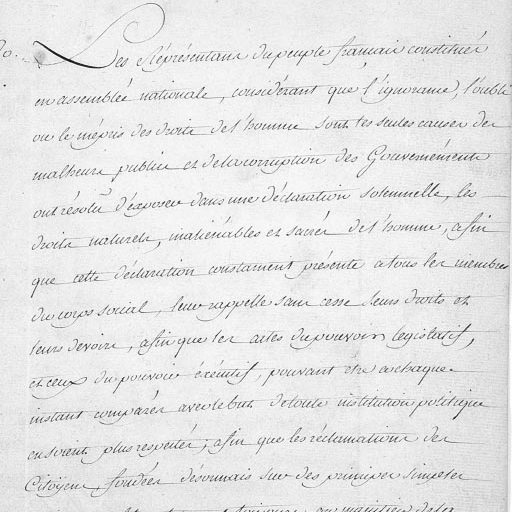 Les Représentans du peuple francais constitués
en assemblée nationale, considérant que l'ignorance, l'oubli
ou le mépris des droits de l'homme sont les seules causes des
malheurs publics et de la corruption des Gouvernéments
ont résolu d'exposer dans une déclaration solemnelle, les
droits naturels, inaliénables et sacrés de l'homme, afin
que cette déclaration constament présente a tous les membres
du corps social, leur rappelle sans cesse leurs droits et
leurs devoirs, afin que les actes du pouvoir legislatif,
et ceux du pouvoir éxécutif, pouvant etre a chaque
instant comparés avec le but de toute institution politique
en soient plus respectés; afin que les réclamations des
Citoyens, fondées désormais sur des principes simples
toujours au maintien de la